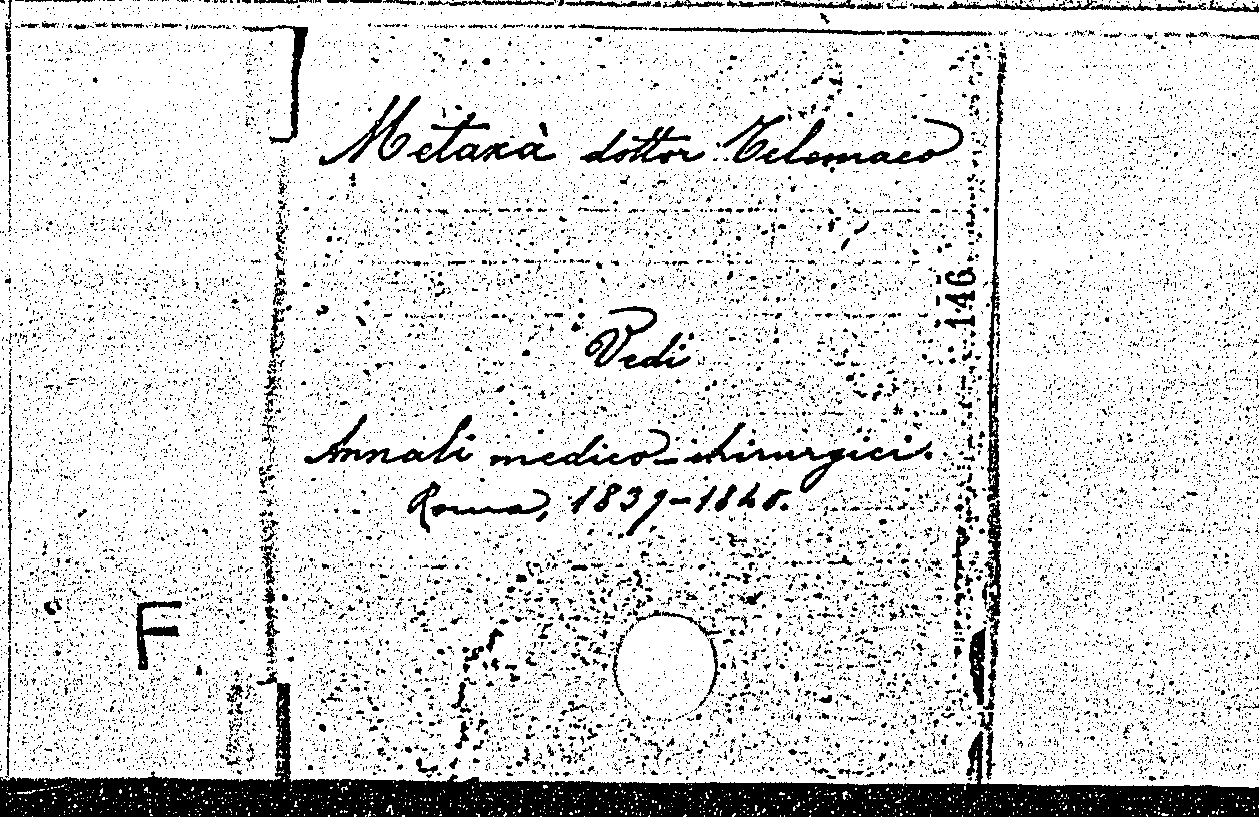 Metaxà dottor Telemaco
146
Vedi
Annali medico-chirurgici.
Roma, 1839-1840.
F